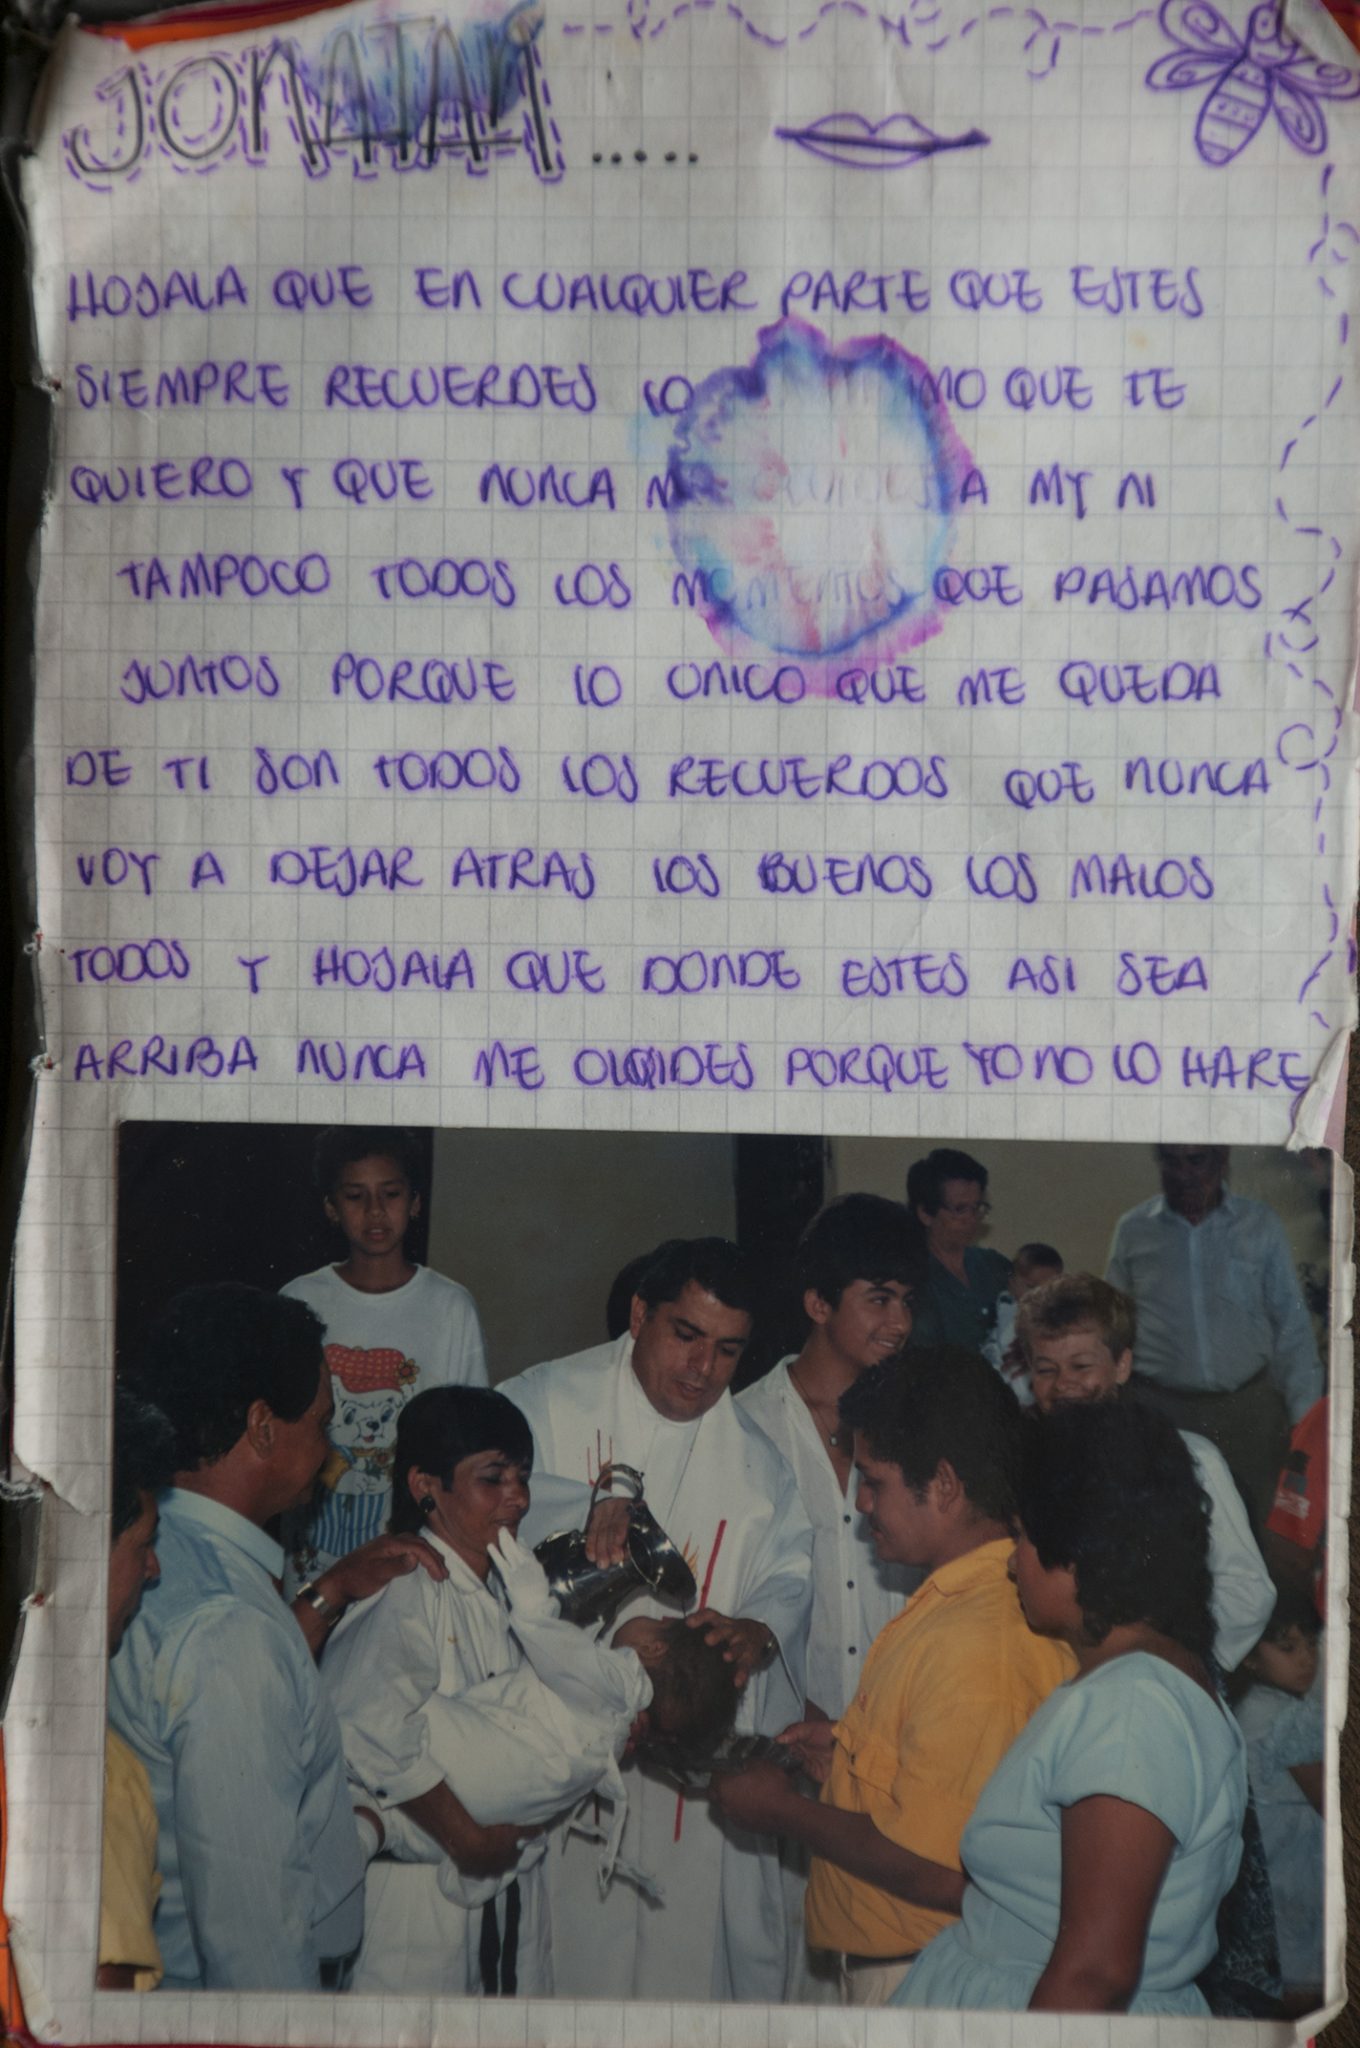 JONATAN .....
HOJALA QUE EN CUALQUIER PARTE QUE ESTES
SIEMPRE RECUERDES LO QUE TE
QUIERO Y QUE NUNCA ME OLVIDES A MY NI
TAMPOCO TODOS LOS MOMENTOS QUE PASAMOS
JUNTOS PORQUE LO UNICO QUE ME QUEDA
DE TI SON TODOS LOS RECUERDOS QUE NUNCA
VOY A DEJAR ATRAS LOS BUENOS LOS MALOS
TODOS Y HOJALA QUE DONDE ESTES ASI SEA
ARRIBA NUNCA ME OLVIDES PORQUE YO NO LO HARE